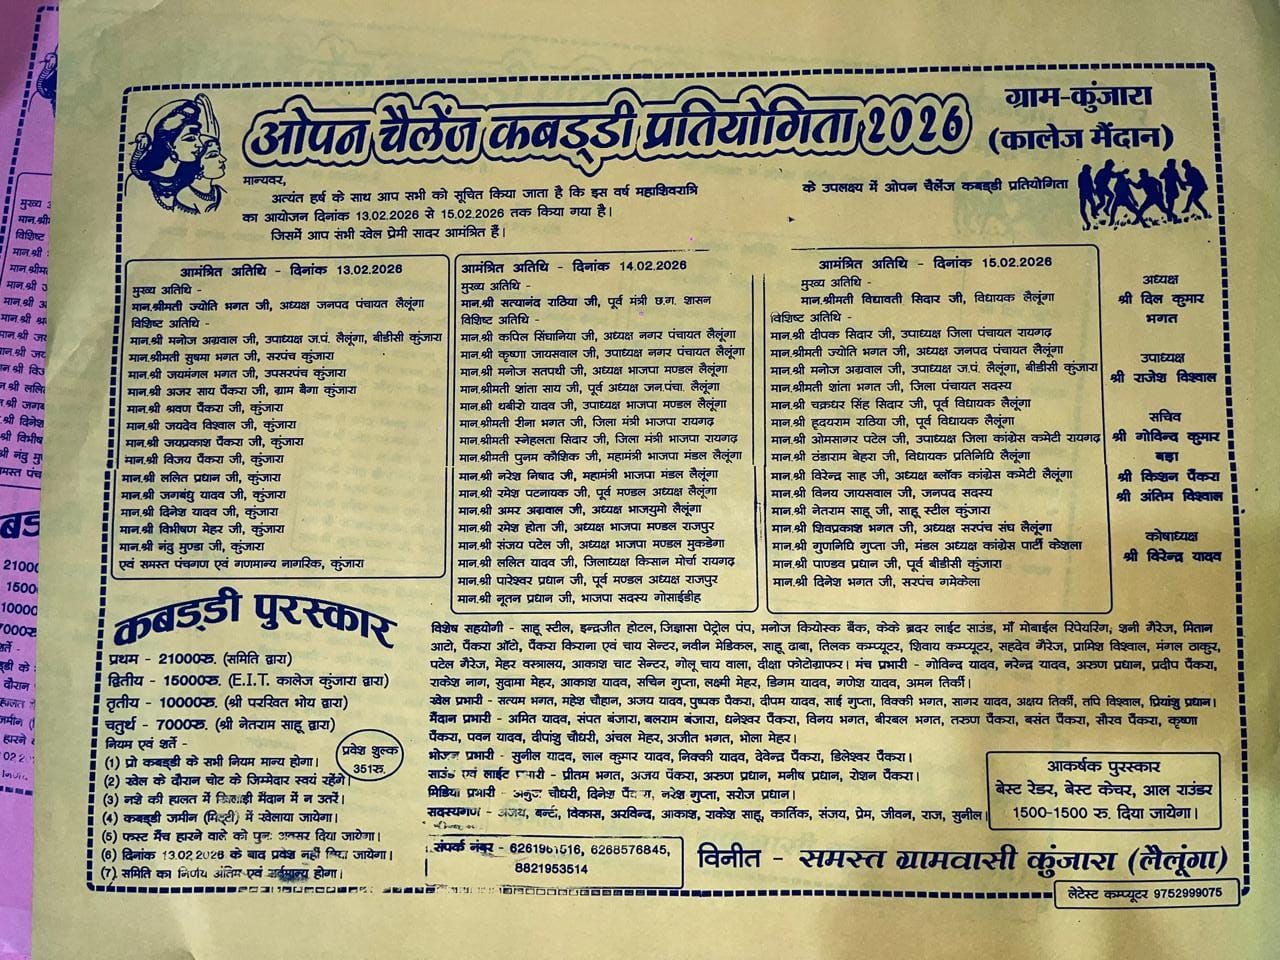 ओपन चैलेंज कबड्डी प्रतियोगिता 2026
ग्राम-कुंजारा
(कालेज मैंदान)
मान्यवर,
अत्यंत हर्ष के साथ आप सभी को सूचित किया जाता है कि इस वर्ष महाशिवरात्रि के उपलक्ष्य में ओपन चैलेंज कबड्डी प्रतियोगिता
का आयोजन दिनांक 13.02.2026 से 15.02.2026 तक किया गया है।
जिसमें आप सभी खेल प्रेमी सादर आमंत्रित हैं।
आमंत्रित अतिथि - दिनांक 13.02.2026
मुख्य अतिथि -
मान.श्रीमती ज्योति भगत जी, अध्यक्ष जनपद पंचायत लैलूंगा
विशिष्ट अतिथि -
मान.श्री मनोज अग्रवाल जी, उपाध्यक्ष ज.पं. लैलूंगा, बीडीसी कुंजारा
मान.श्रीमती सुषमा भगत जी, सरपंच कुंजारा
मान.श्री जयमंगल भगत जी, उपसरपंच कुंजारा
मान.श्री अजर साय पैंकरा जी, ग्राम बैगा कुंजारा
मान.श्री श्रवण पैंकरा जी, कुंजारा
मान.श्री जयदेव विश्वाल जी, कुंजारा
मान.श्री जयप्रकाश पैंकरा जी, कुंजारा
मान.श्री विजय पैंकरा जी, कुंजारा
मान.श्री ललित प्रधान जी, कुंजारा
मान.श्री जगबंधु यादव जी, कुंजारा
मान.श्री दिनेश यादव जी, कुंजारा
मान.श्री विभीषण मेहर जी, कुंजारा
मान.श्री नंदु मुण्डा जी, कुंजारा
एवं समस्त पंचगण एवं गणमान्य नागरिक, कुंजारा
आमंत्रित अतिथि - दिनांक 14.02.2026
मुख्य अतिथि -
मान.श्री सत्यानंद राठिया जी, पूर्व मंत्री छ.ग. शासन
विशिष्ट अतिथि -
मान.श्री कपिल सिंघानिया जी, अध्यक्ष नगर पंचायत लैलूंगा
मान.श्री कृष्णा जायसवाल जी, उपाध्यक्ष नगर पंचायत लैलूंगा
मान.श्री मनोज सतपथी जी, अध्यक्ष भाजपा मण्डल लैलूंगा
मान.श्रीमती शांता साय जी, पूर्व अध्यक्ष जन.पंचा. लैलूंगा
मान.श्री थबीरो यादव जी, उपाध्यक्ष भाजपा मण्डल लैलूंगा
मान.श्रीमती रीना भगत जी, जिला मंत्री भाजपा रायगढ़
मान.श्रीमती स्नेहलता सिदार जी, जिला मंत्री भाजपा रायगढ़
मान.श्रीमती पुनम कौशिक जी, महामंत्री भाजपा मंडल लैलूंगा
मान.श्री नरेश निषाद जी, महामंत्री भाजपा मंडल लैलूंगा
मान.श्री रमेश पटनायक जी, पूर्व मण्डल अध्यक्ष लैलूंगा
मान.श्री अमर अग्रवाल जी, अध्यक्ष भाजयुमो लैलूंगा
मान.श्री रमेश होता जी, अध्यक्ष भाजपा मण्डल राजपुर
मान.श्री संजय पटेल जी, अध्यक्ष भाजपा मण्डल मुकडेगा
मान.श्री ललित यादव जी, जिलाध्यक्ष किसान मोर्चा रायगढ़
मान.श्री पारेश्वर प्रधान जी, पूर्व मण्डल अध्यक्ष राजपुर
मान.श्री नूतन प्रधान जी, भाजपा सदस्य गोसाईडीह
आमंत्रित अतिथि - दिनांक 15.02.2026
मुख्य अतिथि -
मान.श्रीमती विद्यावती सिदार जी, विधायक लैलूंगा
विशिष्ट अतिथि -
मान.श्री दीपक सिदार जी, उपाध्यक्ष जिला पंचायत रायगढ़
मान.श्रीमती ज्योति भगत जी, अध्यक्ष जनपद पंचायत लैलूंगा
मान.श्री मनोज अग्रवाल जी, उपाध्यक्ष ज.पं. लैलूंगा, बीडीसी कुंजारा
मान.श्रीमती शांता भगत जी, जिला पंचायत सदस्य
मान.श्री चक्रधर सिंह सिदार जी, पूर्व विधायक लैलूंगा
मान.श्री हृदयराम राठिया जी, पूर्व विधायक लैलूंगा
मान.श्री ओमसागर पटेल जी, उपाध्यक्ष जिला कांग्रेस कमेटी रायगढ़
मान.श्री ठंडाराम बेहरा जी, विधायक प्रतिनिधि लैलूंगा
मान.श्री विरेन्द्र साह जी, अध्यक्ष ब्लॉक कांग्रेस कमेटी लैलूंगा
मान.श्री विनय जायसवाल जी, जनपद सदस्य
मान.श्री नेतराम साहू जी, साहू स्टील कुंजारा
मान.श्री शिवप्रकाश भगत जी, अध्यक्ष सरपंच संघ लैलूंगा
मान.श्री गुणनिधि गुप्ता जी, मंडल अध्यक्ष कांग्रेस पार्टी केशला
मान.श्री पाण्डव प्रधान जी, पूर्व बीडीसी कुंजारा
मान.श्री दिनेश भगत जी, सरपंच गमेकेला
अध्यक्ष
श्री दिल कुमार
भगत
उपाध्यक्ष
श्री राजेश विश्वाल
सचिव
श्री गोविन्द कुमार
बड़ा
श्री किशन पैंकरा
श्री अंतिम विश्वाल
कोषाध्यक्ष
श्री विरेन्द्र यादव
कबड्डी पुरस्कार
प्रथम - 21000रु. (समिति द्वारा)
द्वितीय - 15000रु. (E.I.T. कालेज कुंजारा द्वारा)
तृतीय - 10000रु. (श्री परखित भोय द्वारा)
चतुर्थ - 7000रु. (श्री नेतराम साहू द्वारा)
नियम एवं शर्ते -
(1) प्रो कबड्डी के सभी नियम मान्य होगा।
(2) खेल के दौरान चोट के जिम्मेदार स्वयं रहेंगे।
(3) नशे की हालत में खिलाड़ी मैदान में न उतरें।
(4) कबड्डी जमीन (मिट्टी) में खेलाया जायेगा।
(5) फस्ट मैंच हारने वाले को पुनः अवसर दिया जायेगा।
(6) दिनांक 13.02.2026 के बाद प्रवेश नहीं दिया जायेगा।
(7) समिति का निर्णय अंतिम एवं सर्वमान्य होगा।
प्रवेश शुल्क
351रु.
विशेष सहयोगी - साहू स्टील, इन्द्रजीत होटल, जिज्ञासा पेट्रोल पंप, मनोज कियोस्क बैंक, केके ब्रदर लाईट साउंड, माँ मोबाईल रिपेयरिंग, शनी गैरेज, मितान
आटो, पैंकरा ऑटो, पैंकरा किराना एवं चाय सेन्टर, नवीन मेडिकल, साहू ढाबा, तिलक कम्प्यूटर, शिवाय कम्प्यूटर, सहदेव गैरेज, प्रामिश विश्वाल, मंगल ठाकुर,
पटेल गैरेज, मेहर वस्त्रालय, आकाश चाट सेन्टर, गोलू चाय वाला, दीक्षा फोटोग्राफर। मंच प्रभारी - गोविन्द यादव, नरेन्द्र यादव, अरुण प्रधान, प्रदीप पैंकरा,
राकेश नाग, सुदामा मेहर, आकाश यादव, सचिन गुप्ता, लक्ष्मी मेहर, डिगम यादव, गणेश यादव, अमन तिर्की।
खेल प्रभारी - सत्यम भगत, महेश चौहान, अजय यादव, पुष्पक पैकरा, दीपम यादव, साई गुप्ता, विक्की भगत, सागर यादव, अक्षय तिर्की, तपि विश्वाल, प्रियांशु प्रधान।
मैंदान प्रभारी - अमित यादव, संपत बंजारा, बलराम बंजारा, धनेश्वर पैंकरा, विनय भगत, बीरबल भगत, तरुण पैंकरा, बसंत पैंकरा, सौरव पैंकरा, कृष्णा
पैंकरा, पवन यादव, दीपांशु चौधरी, अंचल मेहर, अजीत भगत, भोला मेहर।
भोजन प्रभारी - सुनील यादव, लाल कुमार यादव, निक्की यादव, देवेन्द्र पैंकरा, डिलेश्वर पैंकरा।
साउंड एवं लाईट प्रभारी - प्रीतम भगत, अजय पैंकरा, अरुण प्रधान, मनीष प्रधान, रोशन पैंकरा।
मिडिया प्रभारी - अनुज चौधरी, दिनेश पैंकरा, नरेश गुप्ता, सरोज प्रधान।
सदस्यगण - अजय, बन्टी, विकास, अरविन्द, आकाश, राकेश साहू, कार्तिक, संजय, प्रेम, जीवन, राज, सुनील।
आकर्षक पुरस्कार
बेस्ट रेडर, बेस्ट केचर, आल राउंडर
1500-1500 रु. दिया जायेगा।
संपर्क नंबर - 6261961516, 6268576845,
8821953514
विनीत - समस्त ग्रामवासी कुंजारा (लैलूंगा)
लेटेस्ट कम्प्यूटर 9752999075